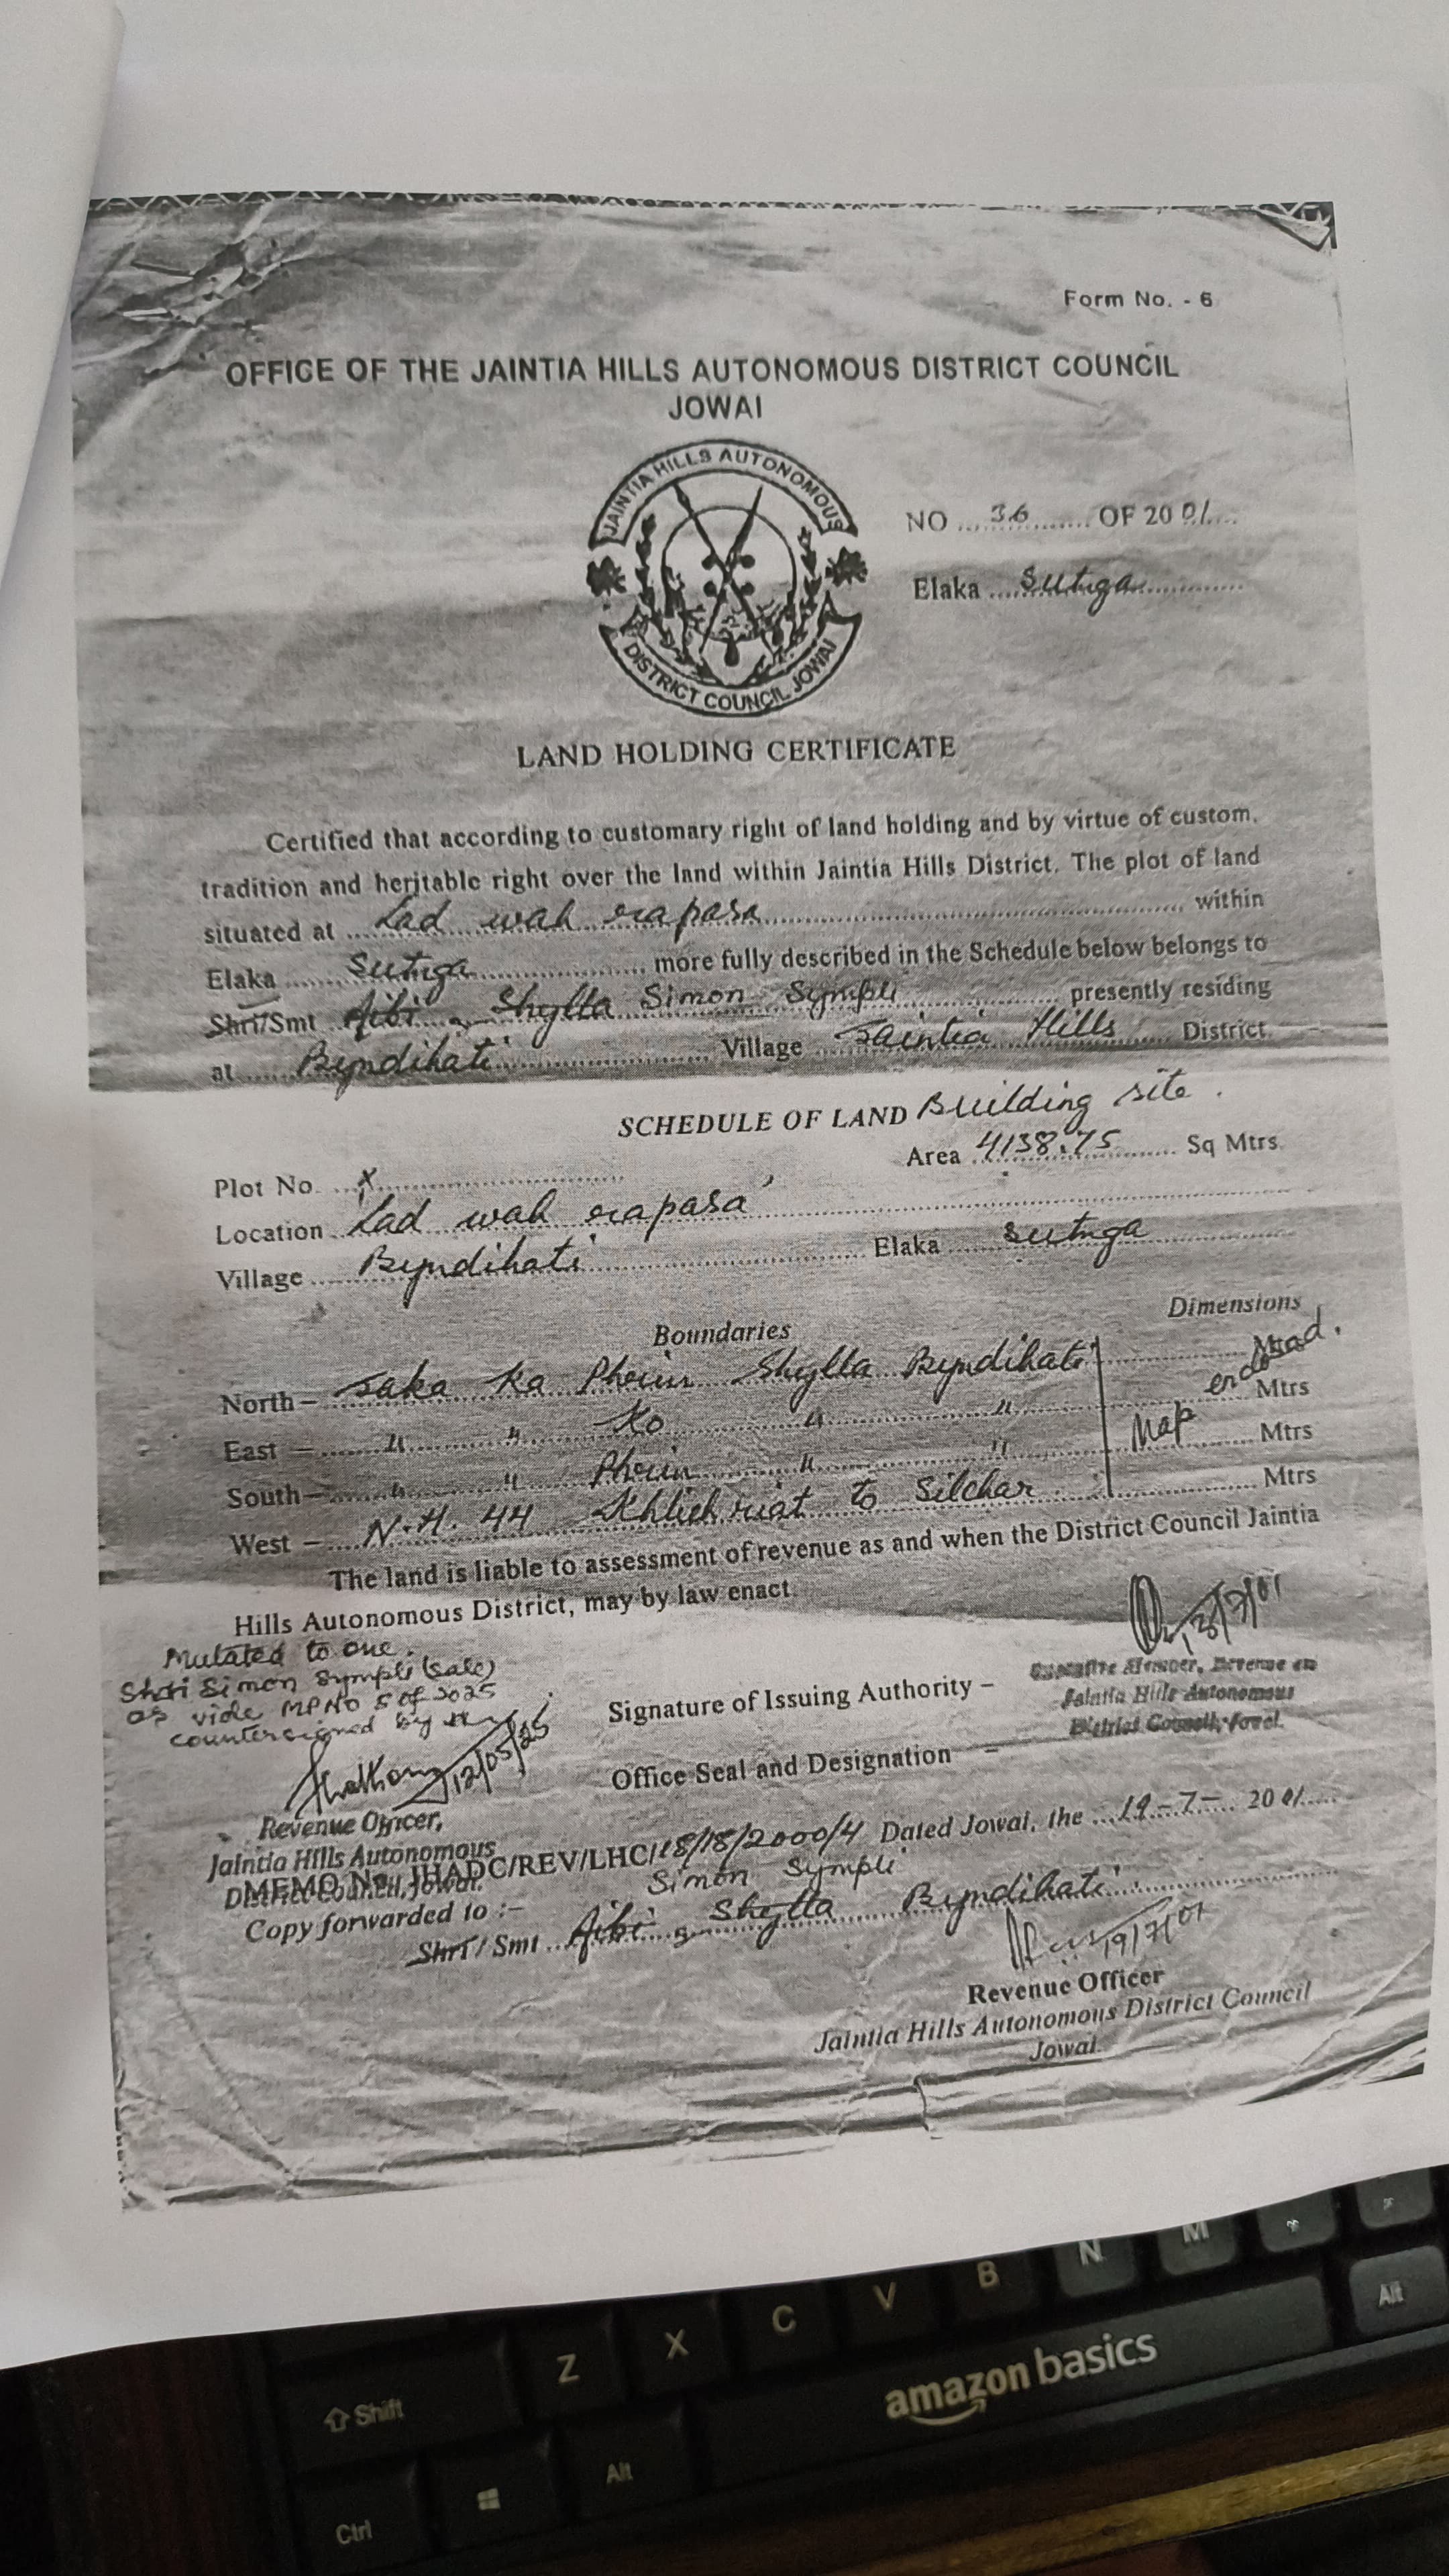 Form No. - 6
OFFICE OF THE JAINTIA HILLS AUTONOMOUS DISTRICT COUNCIL
JOWAI
JAINTIA HILLS AUTONOMOUS
DISTRICT COUNCIL JOWAI
NO ... 36 ....... OF 20 01 ....
Elaka .... Sutnga ............
LAND HOLDING CERTIFICATE
Certified that according to customary right of land holding and by virtue of custom,
tradition and heritable right over the land within Jaintia Hills District. The plot of land
situated at ... Lad wah erapasa ............ within
Elaka ...... Sutnga ............ more fully described in the Schedule below belongs to
Shri/Smt Aibi Shylla Simon Sympli ............ presently residing
at ...... Byndihati ............ Village ... Jaintia Hills ...... District
SCHEDULE OF LAND Building site.
Area 4138.75 ...... Sq Mtrs
Plot No. ... x ............
Location .. Lad wah erapasa ............
Village .... Byndihati ............ Elaka ...... Sutnga ............
Boundaries
Dimensions
North – Jaka ka Phrin Shylla Byndihati ............ Mtrs
East – ...... " " Ko " " ............ Mtrs
South – ...... " " Phrin " " ............ Mtrs
West – .... N.H. 44 Khliehriat to Silchar ............ Mtrs
Map endosad.
The land is liable to assessment of revenue as and when the District Council Jaintia
Hills Autonomous District, may by law enact.
Mutated to one.
Shri Simon Sympli (sale)
as vide MP NO 5 of 2025
countersigned by
12/05/25
Revenue Officer,
Jaintia Hills Autonomous
District Council, Jowai.
Signature of Issuing Authority –
Executive Member, Revenue
Jaintia Hills Autonomous
District Council, Jowai.
Office Seal and Designation –
MEMO No. JHADC/REV/LHC/18/18/2000/4 Dated Jowai, the ... 19-7- .. 20 01 .....
Copy forwarded to :–
Simon Sympli
Shri / Smt ... Aibi Shylla Byndihati ............
19/7/01
Revenue Officer
Jaintia Hills Autonomous District Council
Jowai.
Shift
Z
X
C
V
B
N
M
Alt
Ctrl
Alt
amazon basics